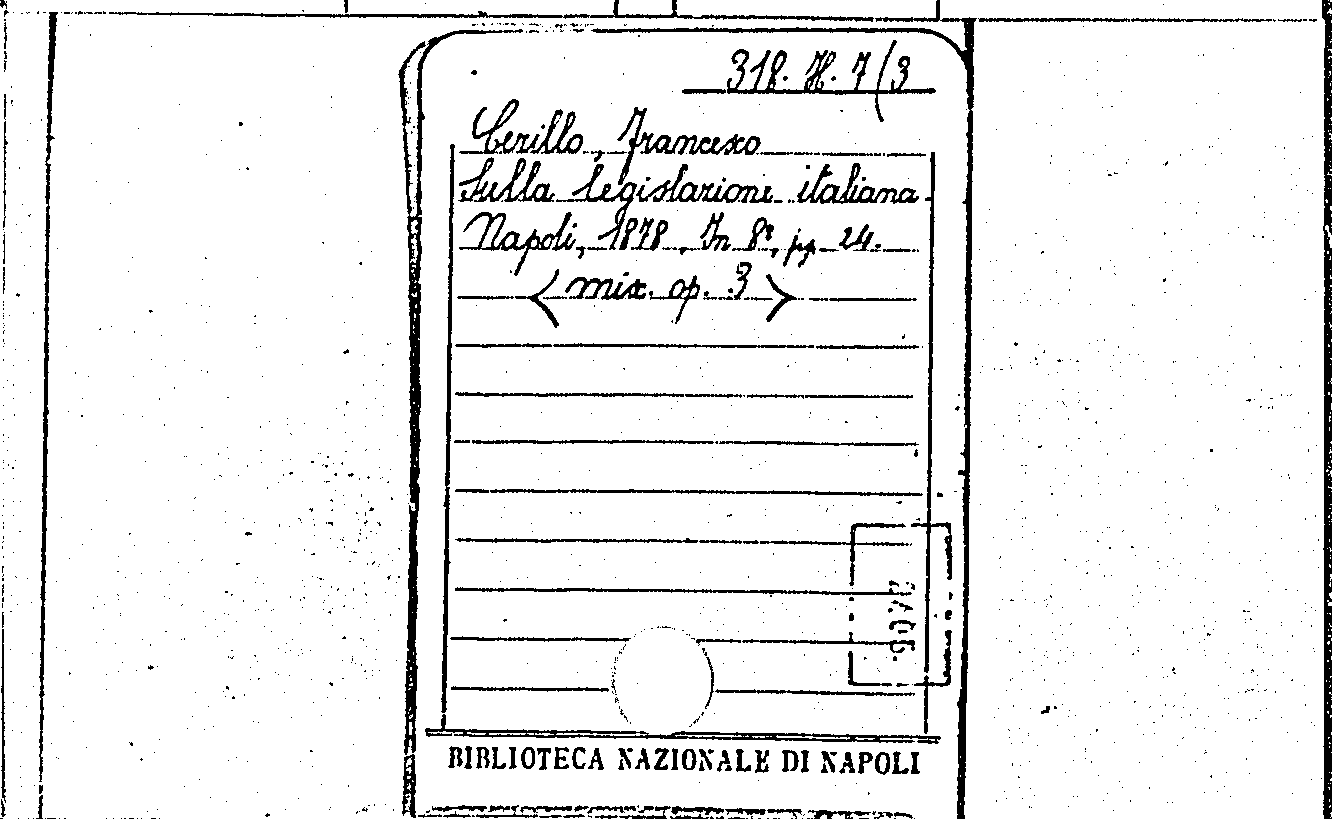 318. H. 7/3
Cerillo, Francesco
Sulla legislazione italiana
Napoli, 1878, In 8º, pp. 24.
mix. op. 3
BIBLIOTECA NAZIONALE DI NAPOLI